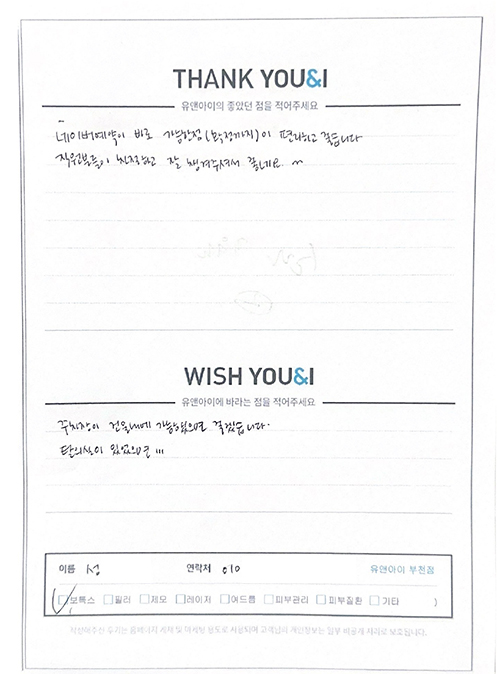 THANK YOU&I
유앤아이의 좋았던 점을 적어주세요
네이버예약이 바로 가능한점(확정까지)이 편리하고 좋습니다
직원분들이 친절하고 잘 챙겨주셔서 좋네요 ~
WISH YOU&I
유앤아이에 바라는 점을 적어주세요
주차장이 건물내에 가능했으면 좋겠습니다.
탈의실이 있었으면 ...
이름 성 연락처 010 유앤아이 부천점
보톡스 필러 제모 레이저 여드름 피부관리 피부질환 기타 )
작성해주신 후기는 홈페이지 게재 및 마케팅 용도로 사용되며 고객님의 개인정보는 일부 비공개 처리로 보호됩니다.